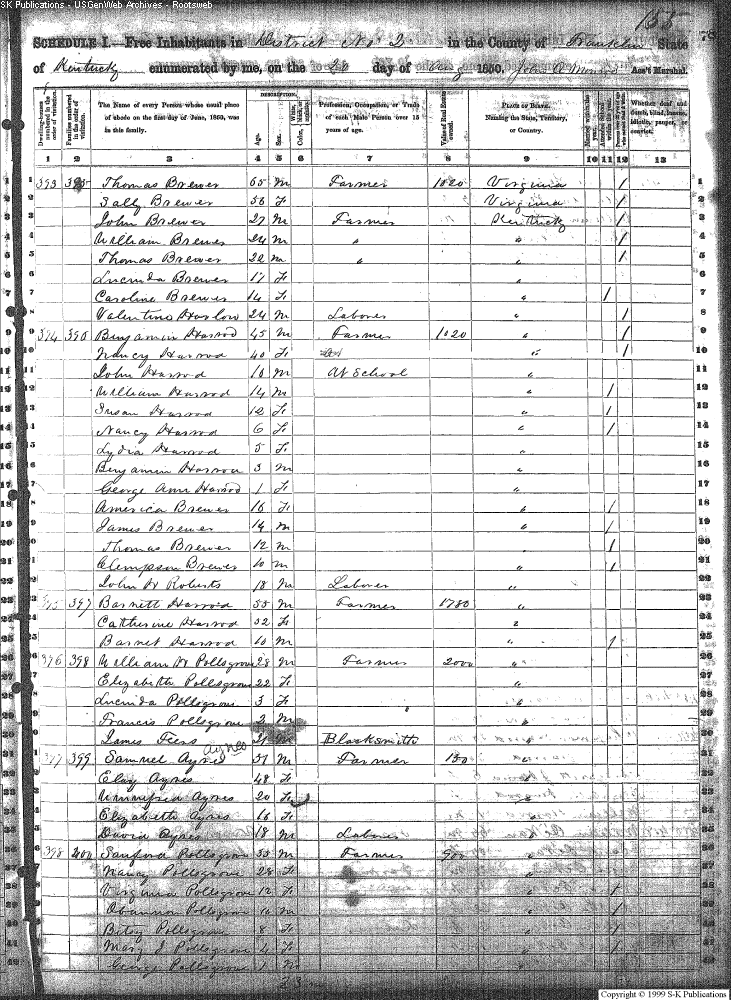 SK Publications - USGenWeb Archives - Rootsweb
155
78
SCHEDULE I.—Free Inhabitants in District No 2 in the County of Franklin State
of Kentucky enumerated by me, on the day of Aug 1850. John A Ass't Marshal.
DESCRIPTION.
Dwelling-houses numbered in the order of visitation.
Families numbered in the order of visitation.
The Name of every Person whose usual place of abode on the first day of June, 1850, was in this family.
Age.
Sex.
Color, White, black, or mulatto.
Profession, Occupation, or Trade of each Male Person over 15 years of age.
Value of Real Estate owned.
PLACE OF BIRTH. Naming the State, Territory, or Country.
Married within the year.
Whether deaf and dumb, blind, insane, idiotic, pauper, or convict.
1 2 3 4 5 6 7 8 9 10 11 12 13
1 393 Thomas Brewer 65 m Farmer 1020 Virginia / 1
2 Sally Brewer 56 F Virginia / 2
3 John Brewer 27 m Farmer Kentucky / 3
4 William Brewer 24 m " " / 4
5 Thomas Brewer 22 m " " / 5
6 Lucinda Brewer 17 F 6
7 Caroline Brewer 14 F " / 7
8 Valentine Harlow 24 m Laborer " / 8
9 394 Benjamin Harrod 45 m Farmer 1020 " / 9
10 Nancy Harrod 40 F " / 10
11 John Harrod m At School " 11
12 William Harrod 14 m " / 12
13 Susan Harrod 12 F " / 13
14 Nancy Harrod 6 F " / 14
15 Lydia Harrod 5 F " 15
16 Benjamin Harrod 3 m " 16
17 George Ann Harrod 1 F " 17
18 America Brewer 16 F " / 18
19 James Brewer 14 m " / 19
20 Thomas Brewer 12 m " / 20
21 Clempson Brewer 10 m " / 21
22 John H Roberts 18 m Laborer " 22
23 395 397 Barnett Harrod 55 m Farmer 1780 " 23
24 Catherine Harrod 52 F " 24
25 Barnet Harrod 10 m " / 25
26 396 398 William H Pollsgrove 28 m Farmer 2000 " 26
27 Elizabeth Pollsgrove 22 F " 27
28 Lucinda Pollsgrove 3 F " 28
29 Francis Pollsgrove 2 m " 29
30 James 21 m Blacksmith " 30
Ayres
31 397 399 Samuel Ayres 51 m Farmer 150 " 31
32 Elay Ayres 48 F " 32
33 Winnifred Ayres 20 F " 33
34 Elizabeth Ayres 16 F " 34
35 David Ayres 18 m Laborer " 35
36 398 400 Sanford Pollsgrove 35 m Farmer 900 " 36
37 Nancy Pollsgrove 28 F " 37
38 Virginia Pollsgrove 12 F " / 38
39 Pollsgrove 10 m " / 39
40 Betsy Pollsgrove 8 F " / 40
41 Mary J Pollsgrove F " / 41
42 George Pollsgrove 1 m " 42
Copyright © 1999 S-K Publications